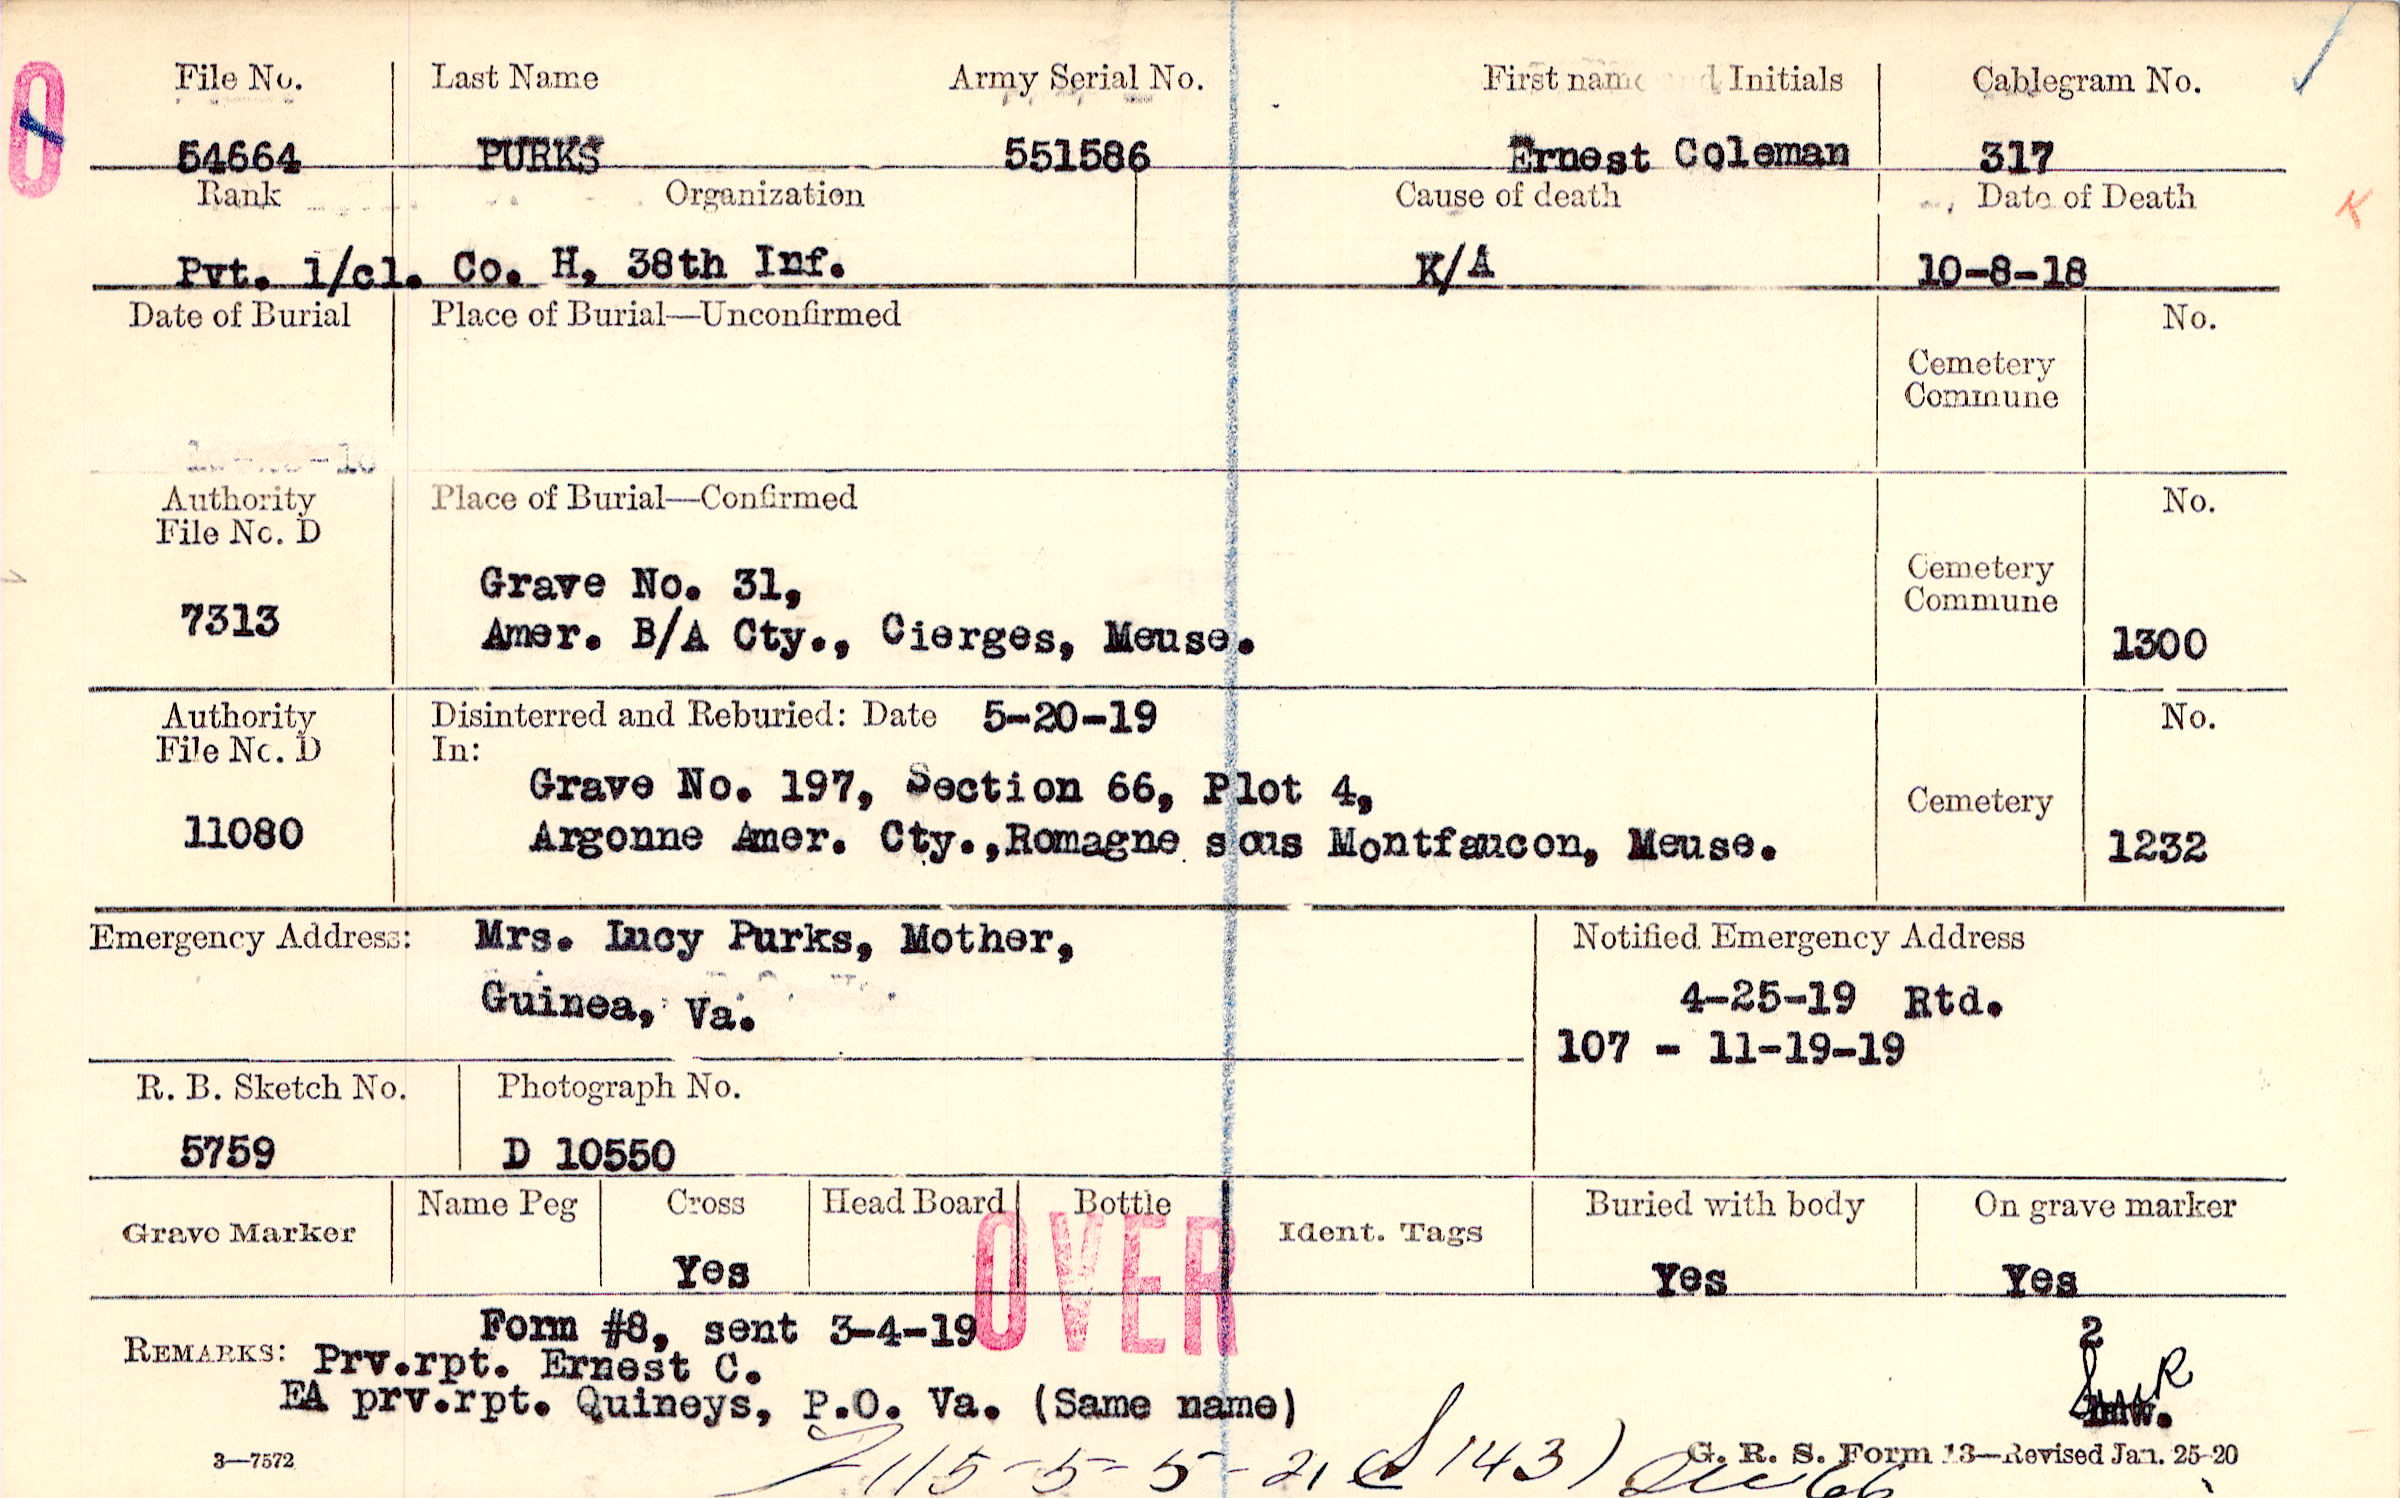 File No. Last Name Army Serial No. First name and Initials Cablegram No.
54664 PURKS 551586 Ernest Coleman 317
Rank Organization Cause of death Date of Death
K
Pvt. 1/cl. Co. H, 38th Inf. K/A 10-8-18
Date of Burial Place of Burial—Unconfirmed No.
Cemetery
Commune
Authority Place of Burial—Confirmed No.
File No. D
Grave No. 31, Cemetery
Commune
7313 Amer. B/A Cty., Cierges, Meuse. 1300
Authority Disinterred and Reburied: Date 5-20-19 No.
File No. D In:
Grave No. 197, Section 66, Plot 4, Cemetery
11080 Argonne Amer. Cty.,Romagne sous Montfaucon, Meuse. 1232
Emergency Address: Mrs. Lucy Purks, Mother, Notified Emergency Address
Guinea, Va. 4-25-19 Rtd.
107 - 11-19-19
R. B. Sketch No. Photograph No.
5759 D 10550
Grave Marker Name Peg Cross Head Board Bottle Ident. Tags Buried with body On grave marker
Yes Yes Yes
OVER
Form #8, sent 3-4-19 2
REMARKS: Prv.rpt. Ernest C.
EA prv.rpt. Quineys, P.O. Va. (Same name)
3—7572 G. R. S. Form 13—Revised Jan. 25-20